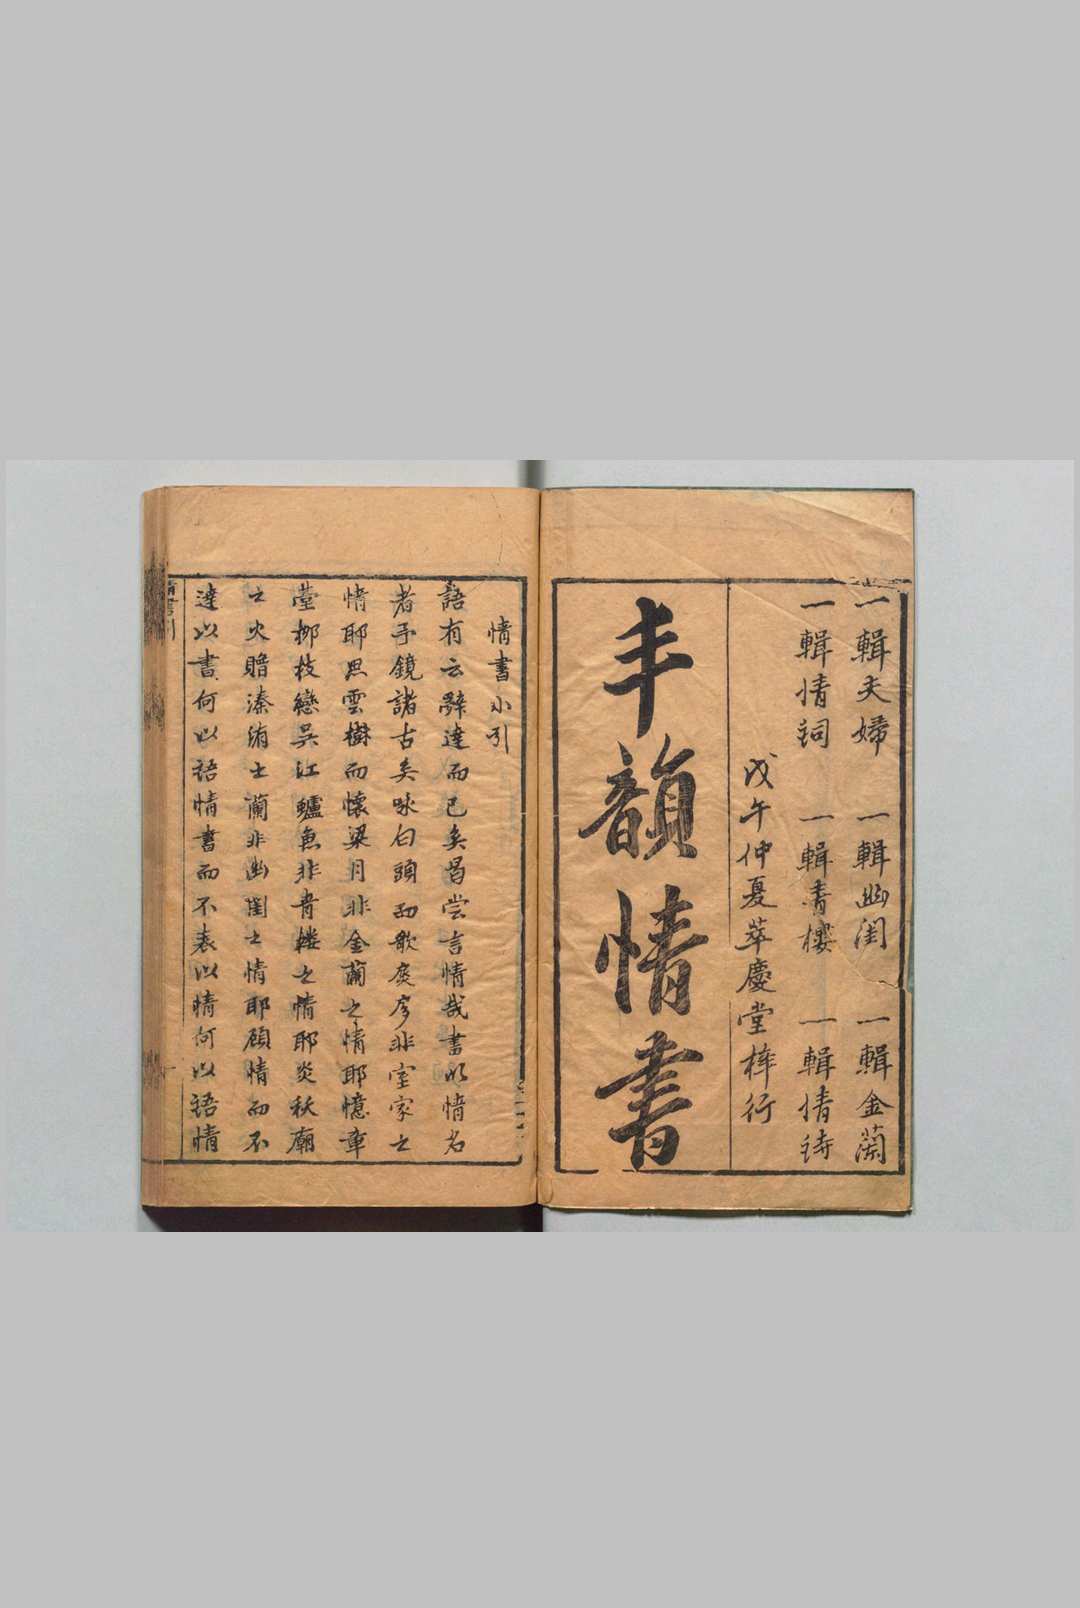 一輯夫婦 一輯幽閨 一輯金蘭
一輯情詞 一輯青樓 一輯情詩
戊午仲夏萃慶堂梓行
丰韻情書
情書小引
語有云辭達而已矣曷嘗言情哉書以情名
者予鏡諸古矣咏白頭而歌扊扅非室家之
情耶思雲樹而懷梁月非金蘭之情耶憶章
臺柳枝戀吳江鱸魚非青樓之情耶炎秋廟
之火贈溱洧士蘭非幽閨之情耶顧情而不
達以書何以語情書而不表以情何以語情